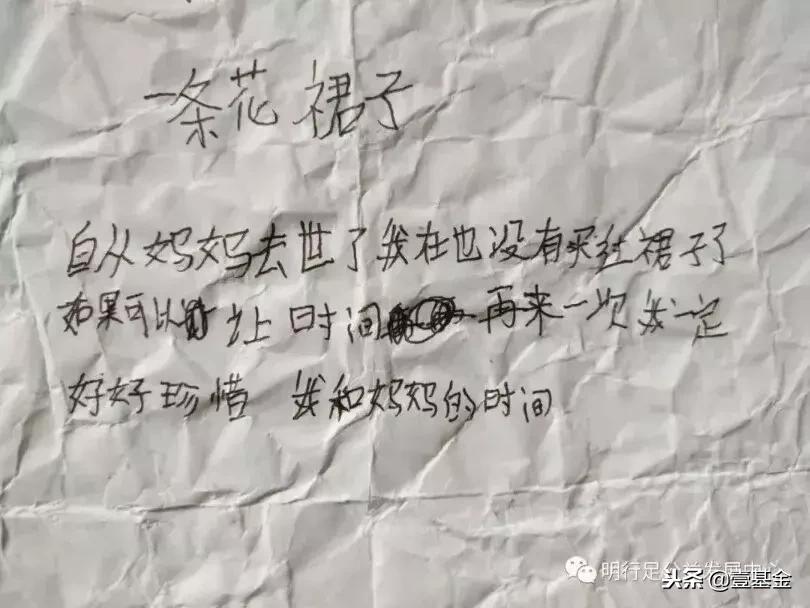 一条花裙子
自从妈妈去世了我在也没有买过裙子了
如果可以让时间再来一次我一定
好好珍惜 我和妈妈的时间
明行足公益发展中心
头条@壹基金